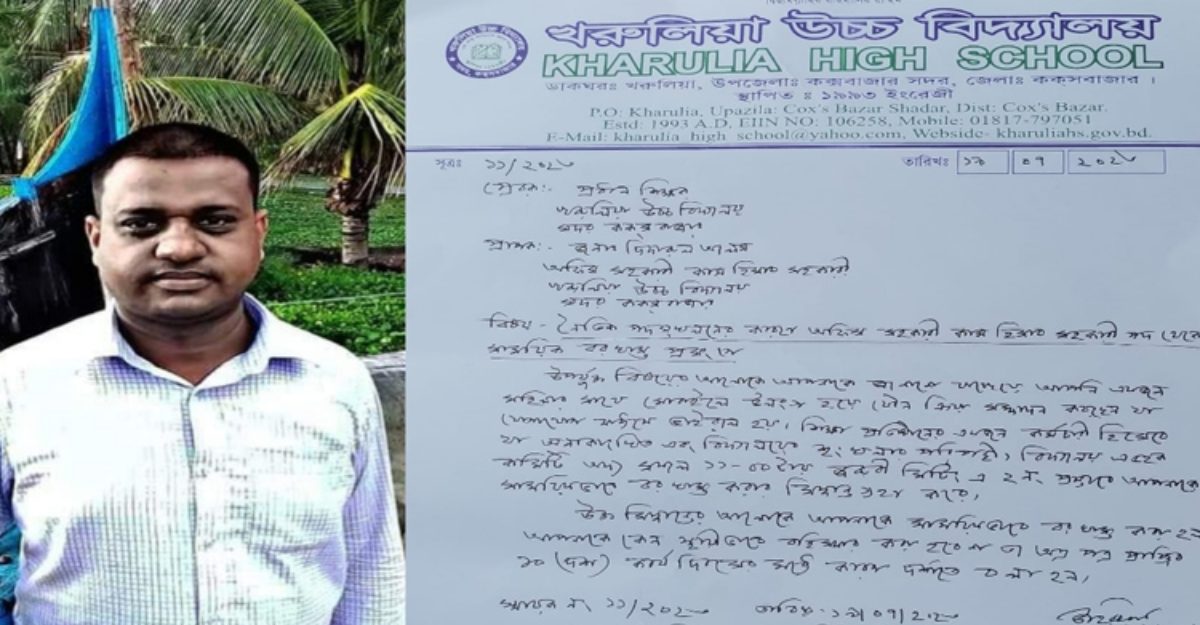 খরুলিয়া উচ্চ বিদ্যালয়
KHARULIA HIGH SCHOOL
ডাকঘরঃ খরুলিয়া, উপজেলাঃ কক্সবাজার সদর, জেলাঃ কক্সবাজার ।
স্থাপিত : ১৯৯৩ ইংরেজী
P.O: Kharulia, Upazila: Cox's Bazar Shadar, Dist: Cox's Bazar.
Estd: 1993 A.D, EIIN NO: 106258, Mobile: 01817-797051
E-Mail: kharulia_high_school@yahoo.com, Webside- kharuliahs.gov.bd.
সূত্রঃ ১১/২০২ তারিখঃ ০৭
প্রেরক:- প্রধান শিক্ষক
খরুলিয়া উচ্চ বিদ্যালয়
সদর কক্সবাজার
প্রাপক:- জনাব দিদারুল আলম
অফিস সহকারী কাম হিসাব সহকারী
খরুলিয়া উচ্চ বিদ্যালয়
সদর কক্সবাজার
বিষয় - নৈতিক পদস্খলনের কারণে অফিস সহকারী কাম হিসাব সহকারী পদ থেকে
সাময়িক বরখাস্ত প্রসঙ্গে
উপর্যুক্ত বিষয়ের আলোকে আপনাকে জানানো যাচ্ছে যে আপনি একজন
মহিলার সাথে মোবাইলে উলংগ হয়ে যৌন ক্রিয়া সম্পাদন করেছেন যা
যোগাযোগ মাধ্যমে ভাইরাল হয়। শিক্ষা প্রতিষ্ঠানের একজন কর্মচারী হিসেবে
যা অনাকাংখিত এবং বিদ্যালয়ের শৃংখলার পরিপন্থী। বিদ্যালয় এডহক
কমিটি অদ্য সকাল ১১-০০টায় জরুরী মিটিং এ ২নং প্রস্তাবে আপনাকে
সাময়িকভাবে বরখাস্ত করার সিদ্ধান্ত গ্রহণ করে।
উক্ত সিদ্ধান্তের আলোকে আপনাকে সাময়িকভাবে বরখাস্ত করা হল
আপনাকে কেন স্থায়ীভাবে বহিষ্কার করা হবে না তা অত্র পত্র প্রাপ্তির
১০ (দশ) কার্য দিবসের মধ্যে কারণ দর্শাতে বলা হল।
স্মারক নং ১১/২০২ তারিখ: /০৭/২০২